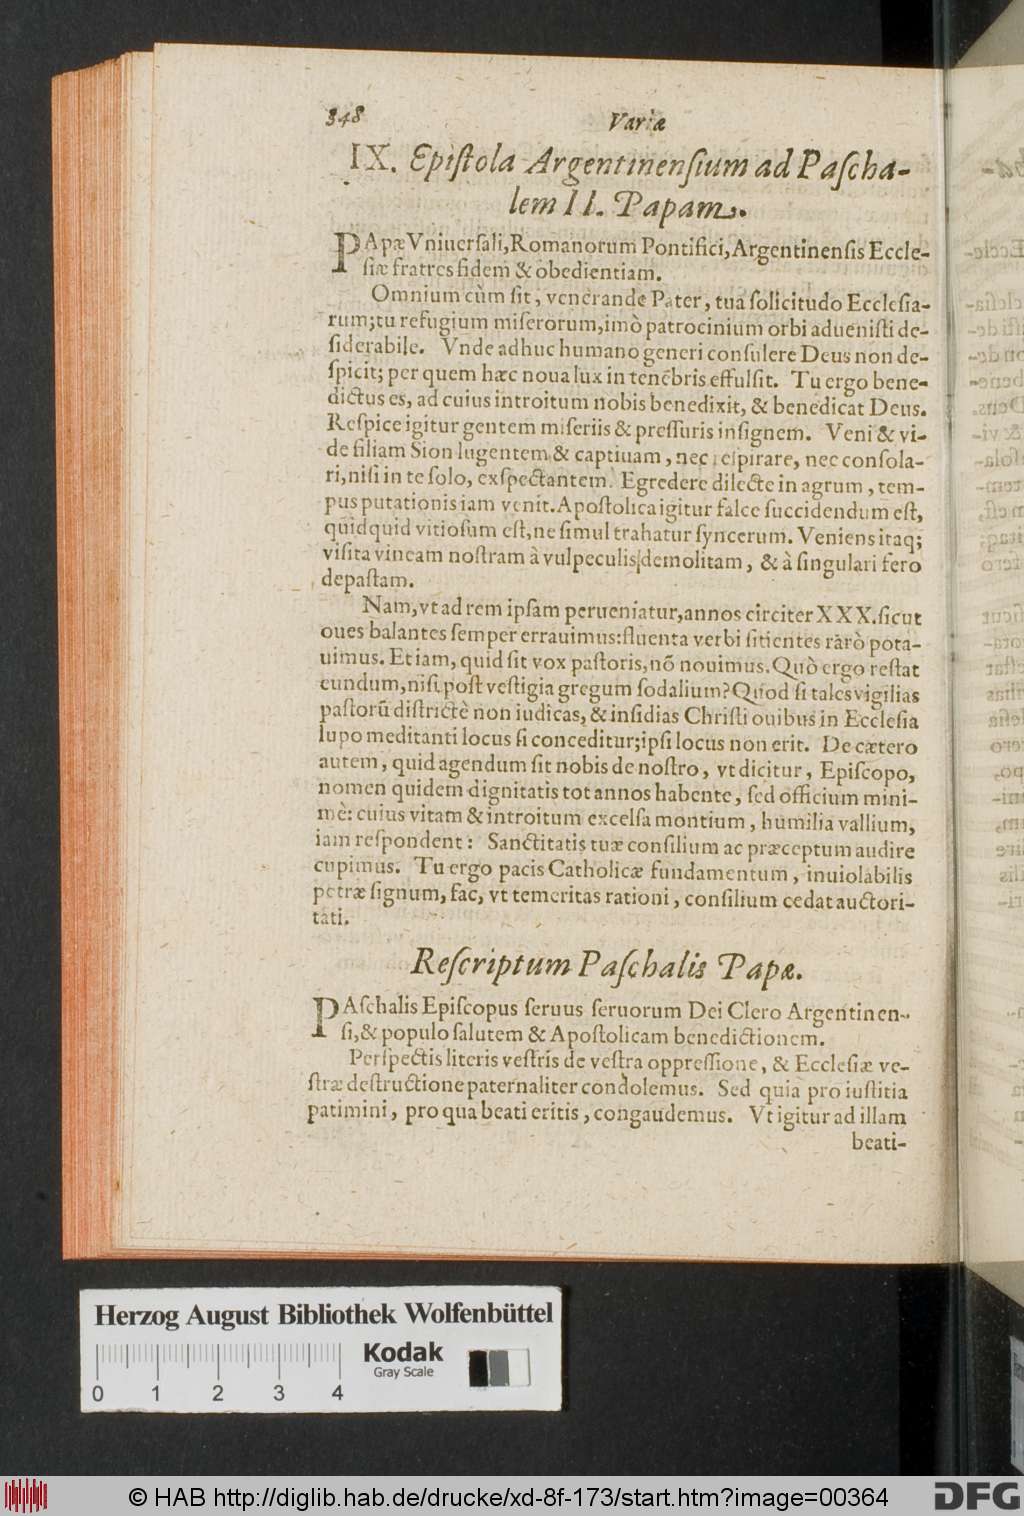 348 Variæ
IX. Epiſtola Argentinenſium ad Paſcha-
lem II. Papam.
PApæ Vniuerſali, Romanorum Pontifici, Argentinenſis Eccle-
ſiæ fratres fidem & obedientiam.
Omnium cùm ſit, venerande Pater, tua ſolicitudo Eccleſia-
rum; tu refugium miſerorum, imò patrocinium orbi adueniſti de-
ſiderabile. Vnde adhuc humano generi conſulere Deus non de-
ſpicit; per quem hæc noua lux in tenebris effulſit. Tu ergo bene-
dictus es, ad cuius introitum nobis benedixit, & benedicat Deus.
Reſpice igitur gentem miſeriis & preſſuris inſignem. Veni & vi-
de filiam Sion lugentem & captiuam, nec reſpirare, nec conſola-
ri, niſi in te ſolo, exſpectantem. Egredere dilecte in agrum, tem-
pus putationis iam venit. Apoſtolica igitur falce ſuccidendum eſt,
quidquid vitioſum eſt, ne ſimul trahatur ſyncerum. Veniens itaq;
viſita vineam noſtram à vulpeculis demolitam, & à ſingulari fero
depaſtam.
Nam, vt ad rem ipſam perueniatur, annos circiter XXX. ſicut
oues balantes ſemper errauimus: fluenta verbi ſitientes rarò pota-
uimus. Etiam, quid ſit vox paſtoris, nõ nouimus. Quò ergo reſtat
eundum, niſi poſt veſtigia gregum ſodalium? Quod ſi tales vigilias
paſtorũ diſtrictè non iudicas, & inſidias Chriſti ouibus in Eccleſia
lupo meditanti locus ſi conceditur; ipſi locus non erit. De cætero
autem, quid agendum ſit nobis de noſtro, vt dicitur, Epiſcopo,
nomen quidem dignitatis tot annos habente, ſed officium mini-
mè: cuius vitam & introitum excelſa montium, humilia vallium,
iam reſpondent: Sanctitatis tuæ conſilium ac præceptum audire
cupimus. Tu ergo pacis Catholicæ fundamentum, inuiolabilis
petræ ſignum, fac, vt temeritas rationi, conſilium cedat auctori-
tati.
Reſcriptum Paſchalis Papæ.
PAſchalis Epiſcopus ſeruus ſeruorum Dei Clero Argentinen-
ſi, & populo ſalutem & Apoſtolicam benedictionem.
Perſpectis literis veſtris de veſtra oppreſſione, & Eccleſiæ ve-
ſtræ deſtructione paternaliter condolemus. Sed quia pro iuſtitia
patimini, pro qua beati eritis, congaudemus. Vt igitur ad illam
beati-
Herzog August Bibliothek Wolfenbüttel
Kodak
Gray Scale
0 1 2 3 4
© HAB http://diglib.hab.de/drucke/xd-8f-173/start.htm?image=00364
DFG